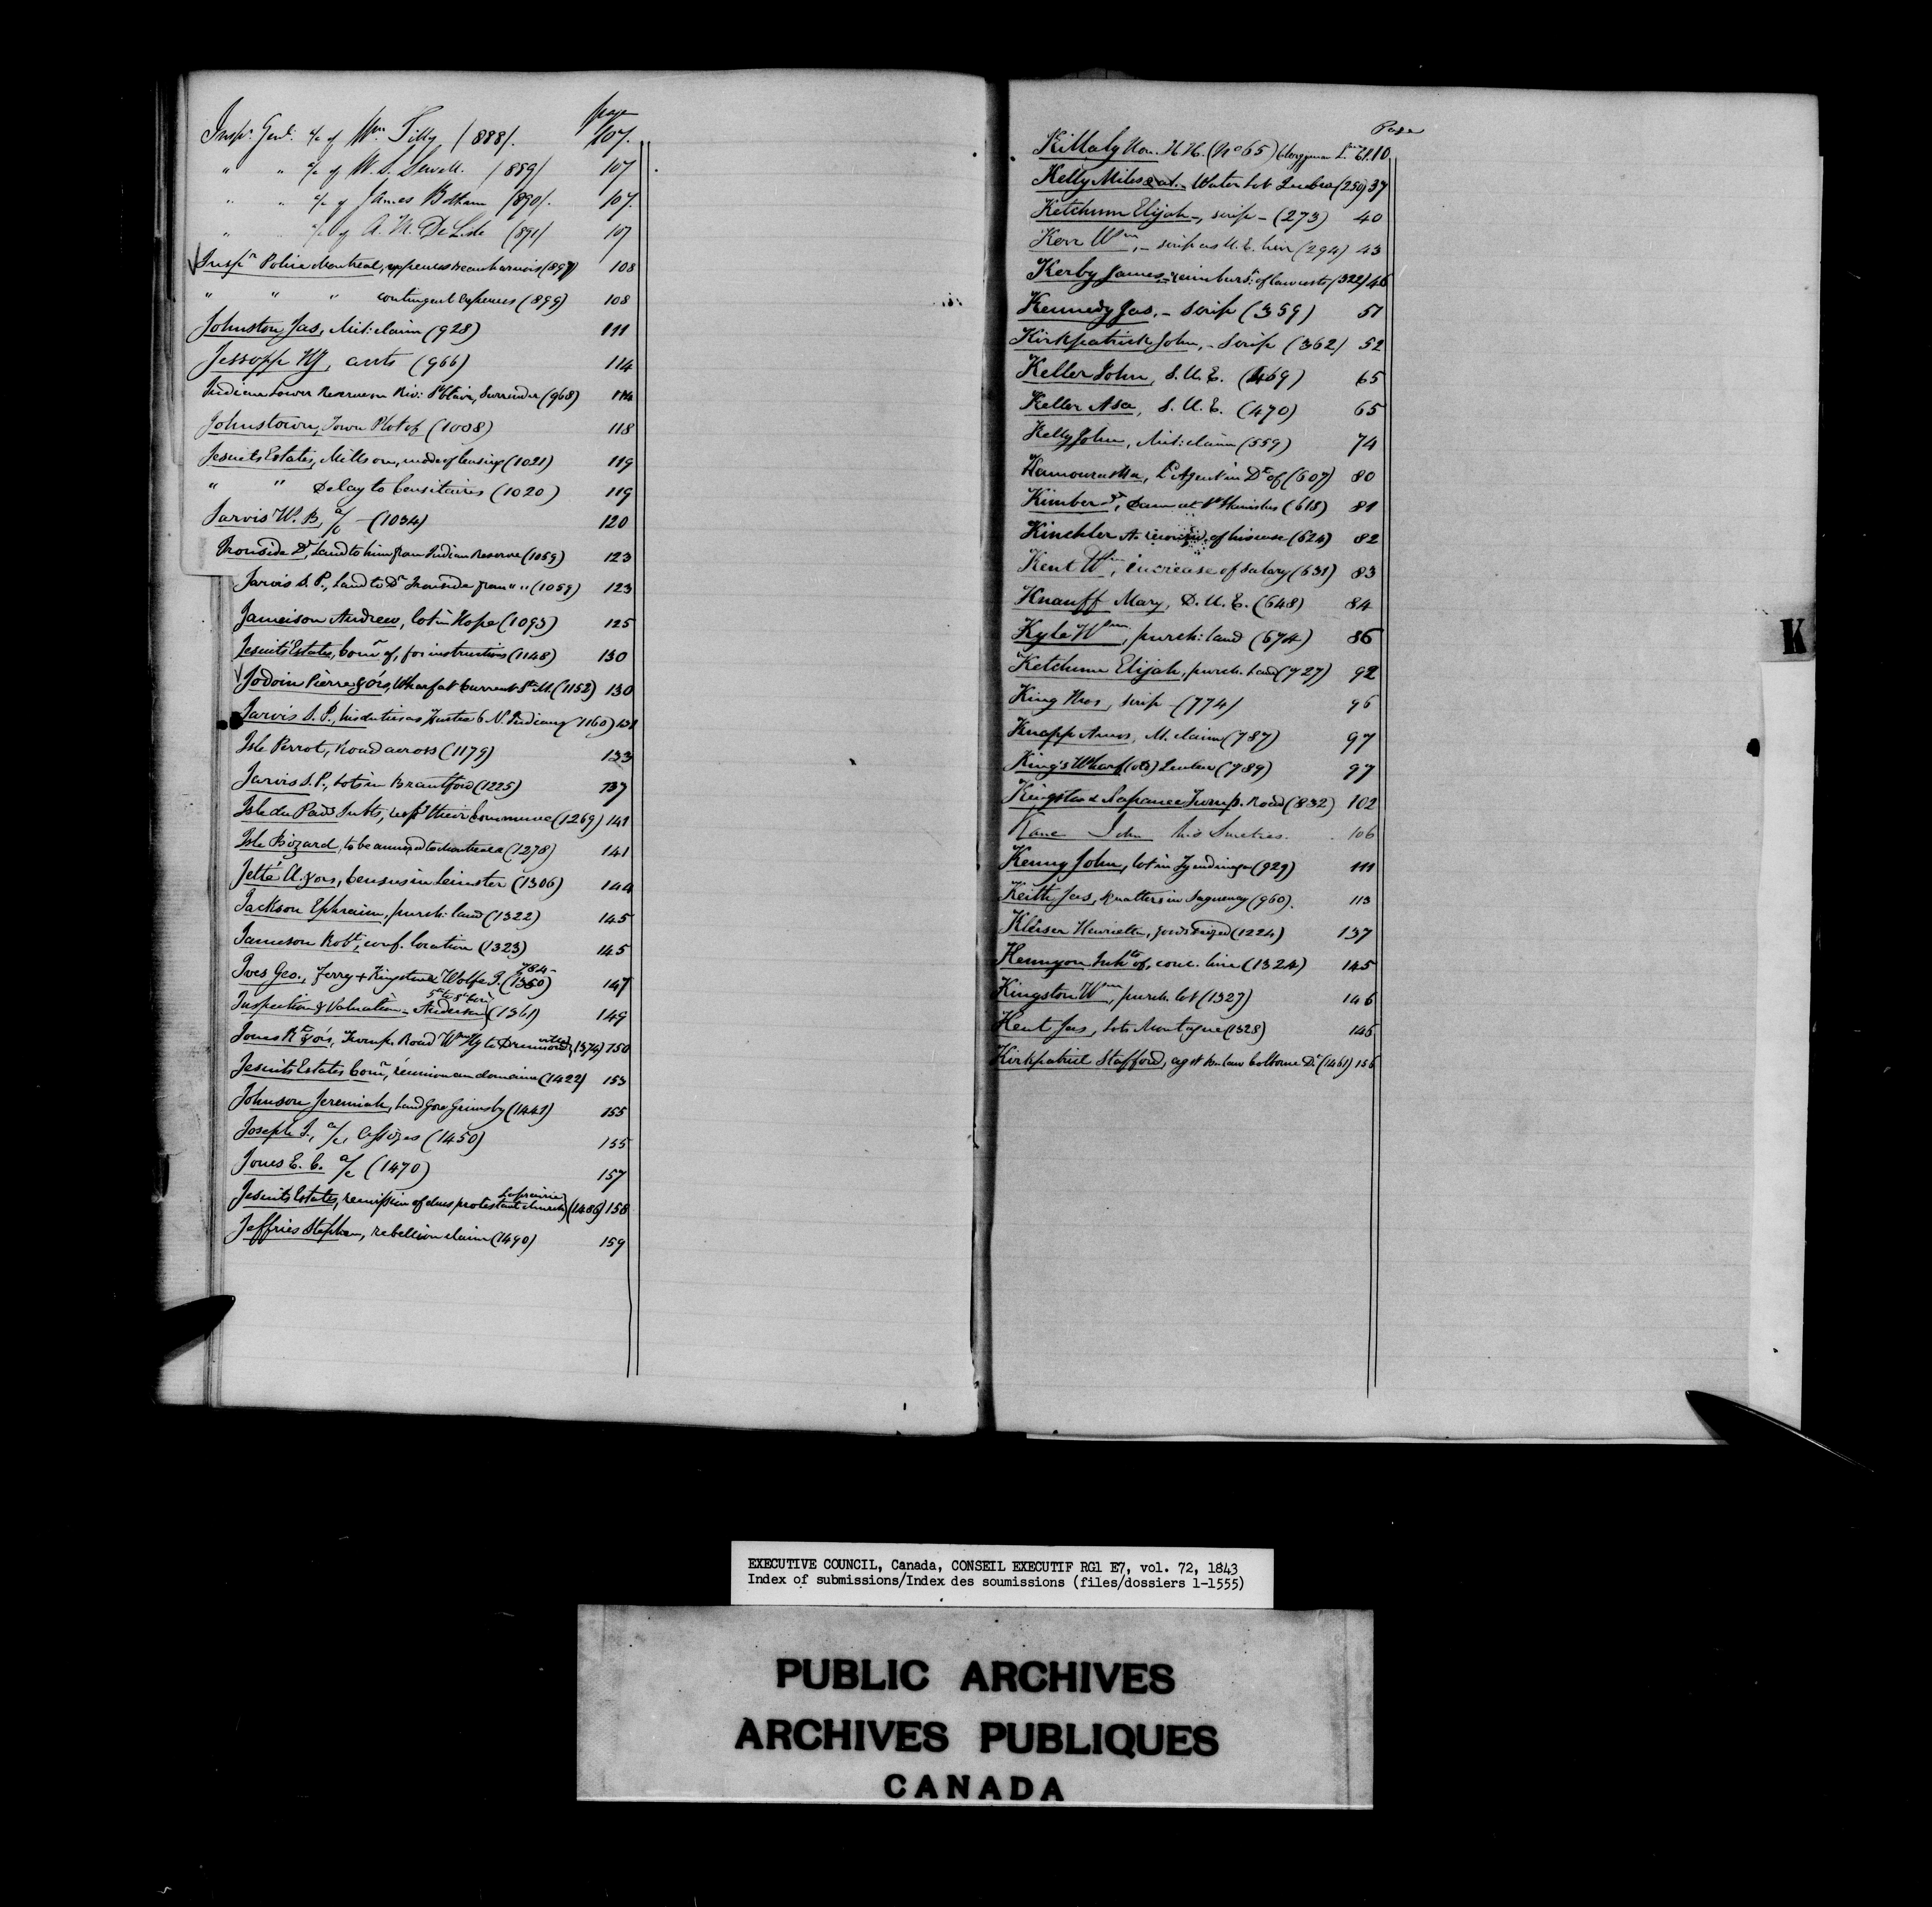 page
Insp.r Genl: a/c of Wm. Tilly (888). 107.
" " a/c of W. S. Sewell. (889) 107
" " a/c of James Botham (890). 107.
" " a/c of A. M. DeLisle (891) 107
Inspr Police Montreal, expenses Beauharnois (897) 108
" " " contingent expenses (899) 108
Johnston Jas, Mil: claim (928) 111
Jessopp HJ, accts (966) 114
Indian Lower Reserve on Riv: St Clair, Surrender (968) 114
Johnstown, Town Plot of (1008) 118
Jesuits Estates, Mills on, mode of leasing (1021) 119
" " Delay to Censitaires (1020) 119
Jarvis W. B, a/c - (1034) 120
Ironside Dr, Land to him from Indian Reserve (1059) 123
Jarvis S. P., Land to Dr Ironside from " " (1059) 123
Jameison Andrew, lot in Hope (1093) 125
Jesuits' Estates, Comr of, for instructions (1148) 130
Jodoin Pierre & ors, Wharf at Current St M. (1152) 130
Jarvis S. P., his duties as Trustee 6 N. Indians (1160) 131
Isle Perrot, Road across (1179) 133
Jarvis S. P., Lots in Brantford (1225) 137
Isle du Pads Inhts, resp their Commune (1269) 141
Isle Bizard, to be annexed to Montreal (1278) 141
Jetté A. & ors, Census in Leinster (1306) 144
Jackson Ephraim, purch: land (1322) 145
Jameson Robt, conf. location (1323) 145
Ives Geo., Ferry + Kingston & Wolfe I. (1350) 147
Inspection & Valuation - Anderson (1361) 149
Jones Rt & ors, Turnp. Road Wm Hy to Drummondville (1374) 150
Jesuits Estates Comr, réunion au domaine (1422) 153
Johnson Jeremiah, Land Gore Grimsby (1441) 155
Joseph J., a/c, Assizes (1450) 155
Jones E. C. a/c (1470) 157
Jesuits Estates, remission of dues protestant church Laprairie (1486) 158
Jeffries Stephen, rebellion claim (1490) 159
Page
Killaly Hon. H. H. (No 65) Clergyman 10
Kelly Miles & al. - Water Lot Quebec (250) 37
Ketchum Elijah -, scrip - (273) 40
Kerr Wm, - scrip as U. E. heir (294) 43
Kerby James, - reimburst of law costs (322) 46
Kennedy Jas. - Scrip (359) 51
Kirkpatrick John, - Scrip (362) 52
Keller John, S. U. E. (469) 65
Keller Asa, S. U. E. (470) 65
Kelly John, Mil: claim (559) 74
Kamouraska, Ld Agent in Dt of (607) 80
Kimber Dr, Dam at St Stanislas (615) 81
Kinchler A. reconsid. of his case (624) 82
Kent Wm, increase of Salary (631) 83
Knauff Mary, D. U. E. (648) 84
Kyle Wm, purch: land (674) 86
Ketchum Elijah, purch. Land (727) 92
King Thos, scrip - (774) 96
Knapp Amos, M. claim (787) 97
King's Wharf (old) Quebec (789) 97
Kingston & Napanee Turnp. Road (832) 102
Kane John his Sureties. 106
Kenny John, lot in Tyendinaga (929) 111
Keith Jas, squatters in Saguenay (960). 113
Kleiser Henrietta, goods seized (1224) 137
Kenyon Inhts of, conc. line (1324) 145
Kingston Wm, purch. lot (1327) 146
Kent Jas, Lots Montague (1328) 146
Kirkpatrick Stafford, agst By law Colborne Dt (1461) 156
K
EXECUTIVE COUNCIL, Canada, CONSEIL EXECUTIF RG1 E7, vol. 72, 1843
Index of submissions/Index des soumissions (files/dossiers 1-1555)
PUBLIC ARCHIVES
ARCHIVES PUBLIQUES
CANADA